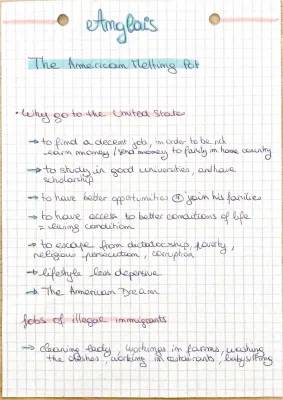 Anglais
The American Melting Pot
• Why go to the United States
→ to find a decent job, in order to be rich
earn money / send money to family in home country
→ to study in good universities, and have
scholarship
→ to have better opportunities join his families
→ to have access to better conditions of life
= living condition
→ to escape from dictatorship, poverty,
religious persecution, corruption
→ lifestyle less depensive
→ The American Dream
Jobs of illegal immigrants
→ cleaning lady, workings in farms, washing
the dishes, working in restaurants, babysitting